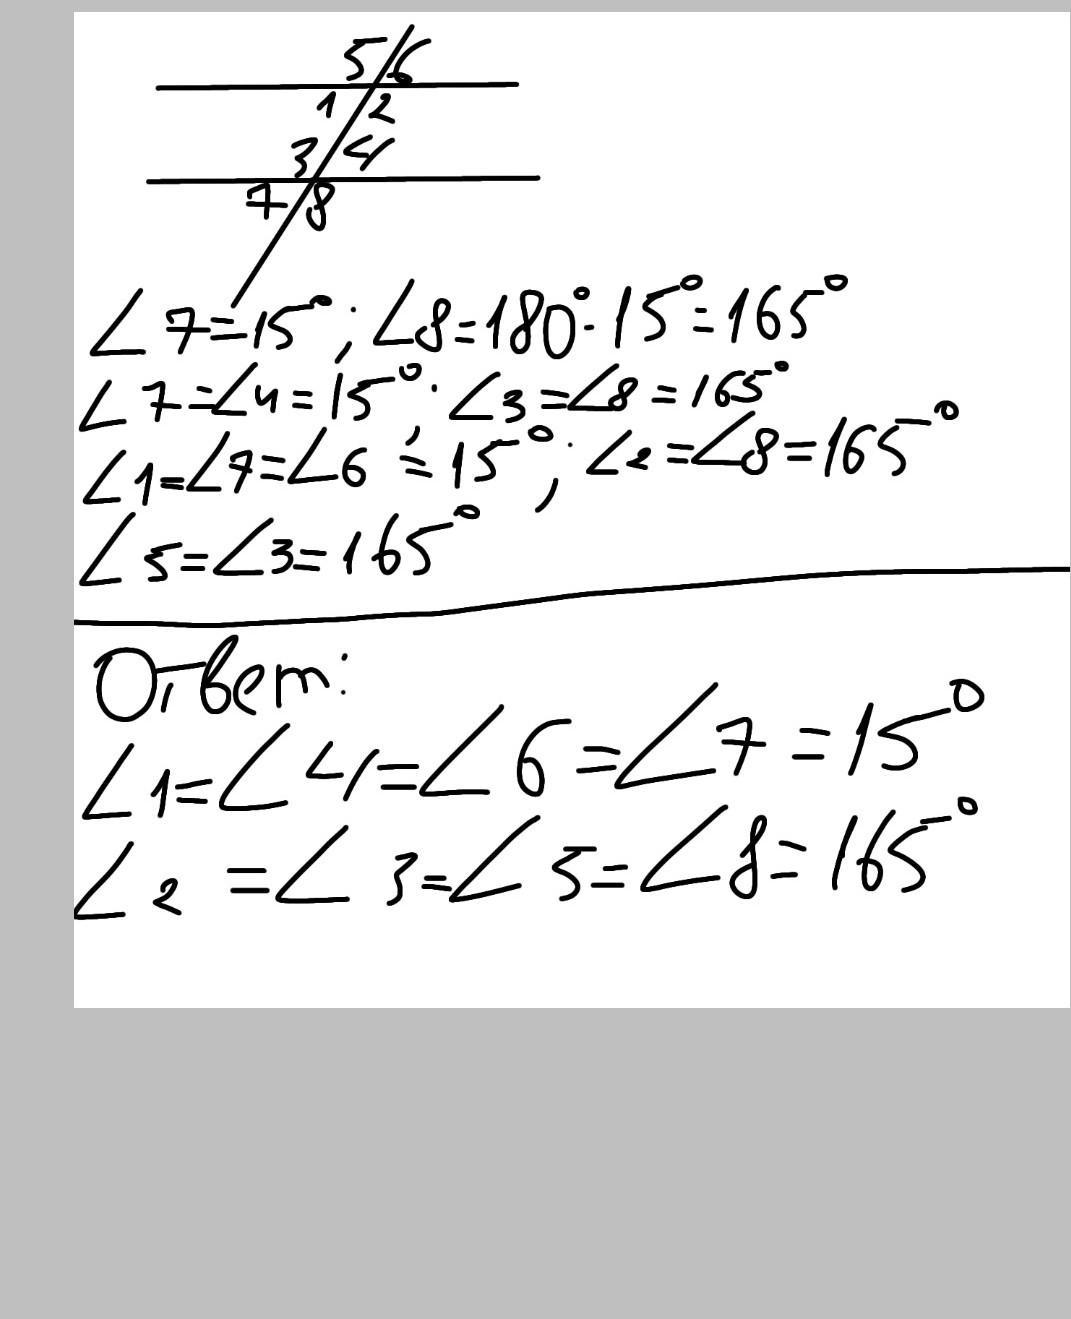 5 6
1 2
3 4
7 8
∠7=15°; ∠8=180°-15°=165°
∠7=∠4=15°; ∠3=∠8=165°
∠1=∠7=∠6=15°; ∠2=∠8=165°
∠5=∠3=165°
Ответ:
∠1=∠4=∠6=∠7=15°
∠2=∠3=∠5=∠8=165°